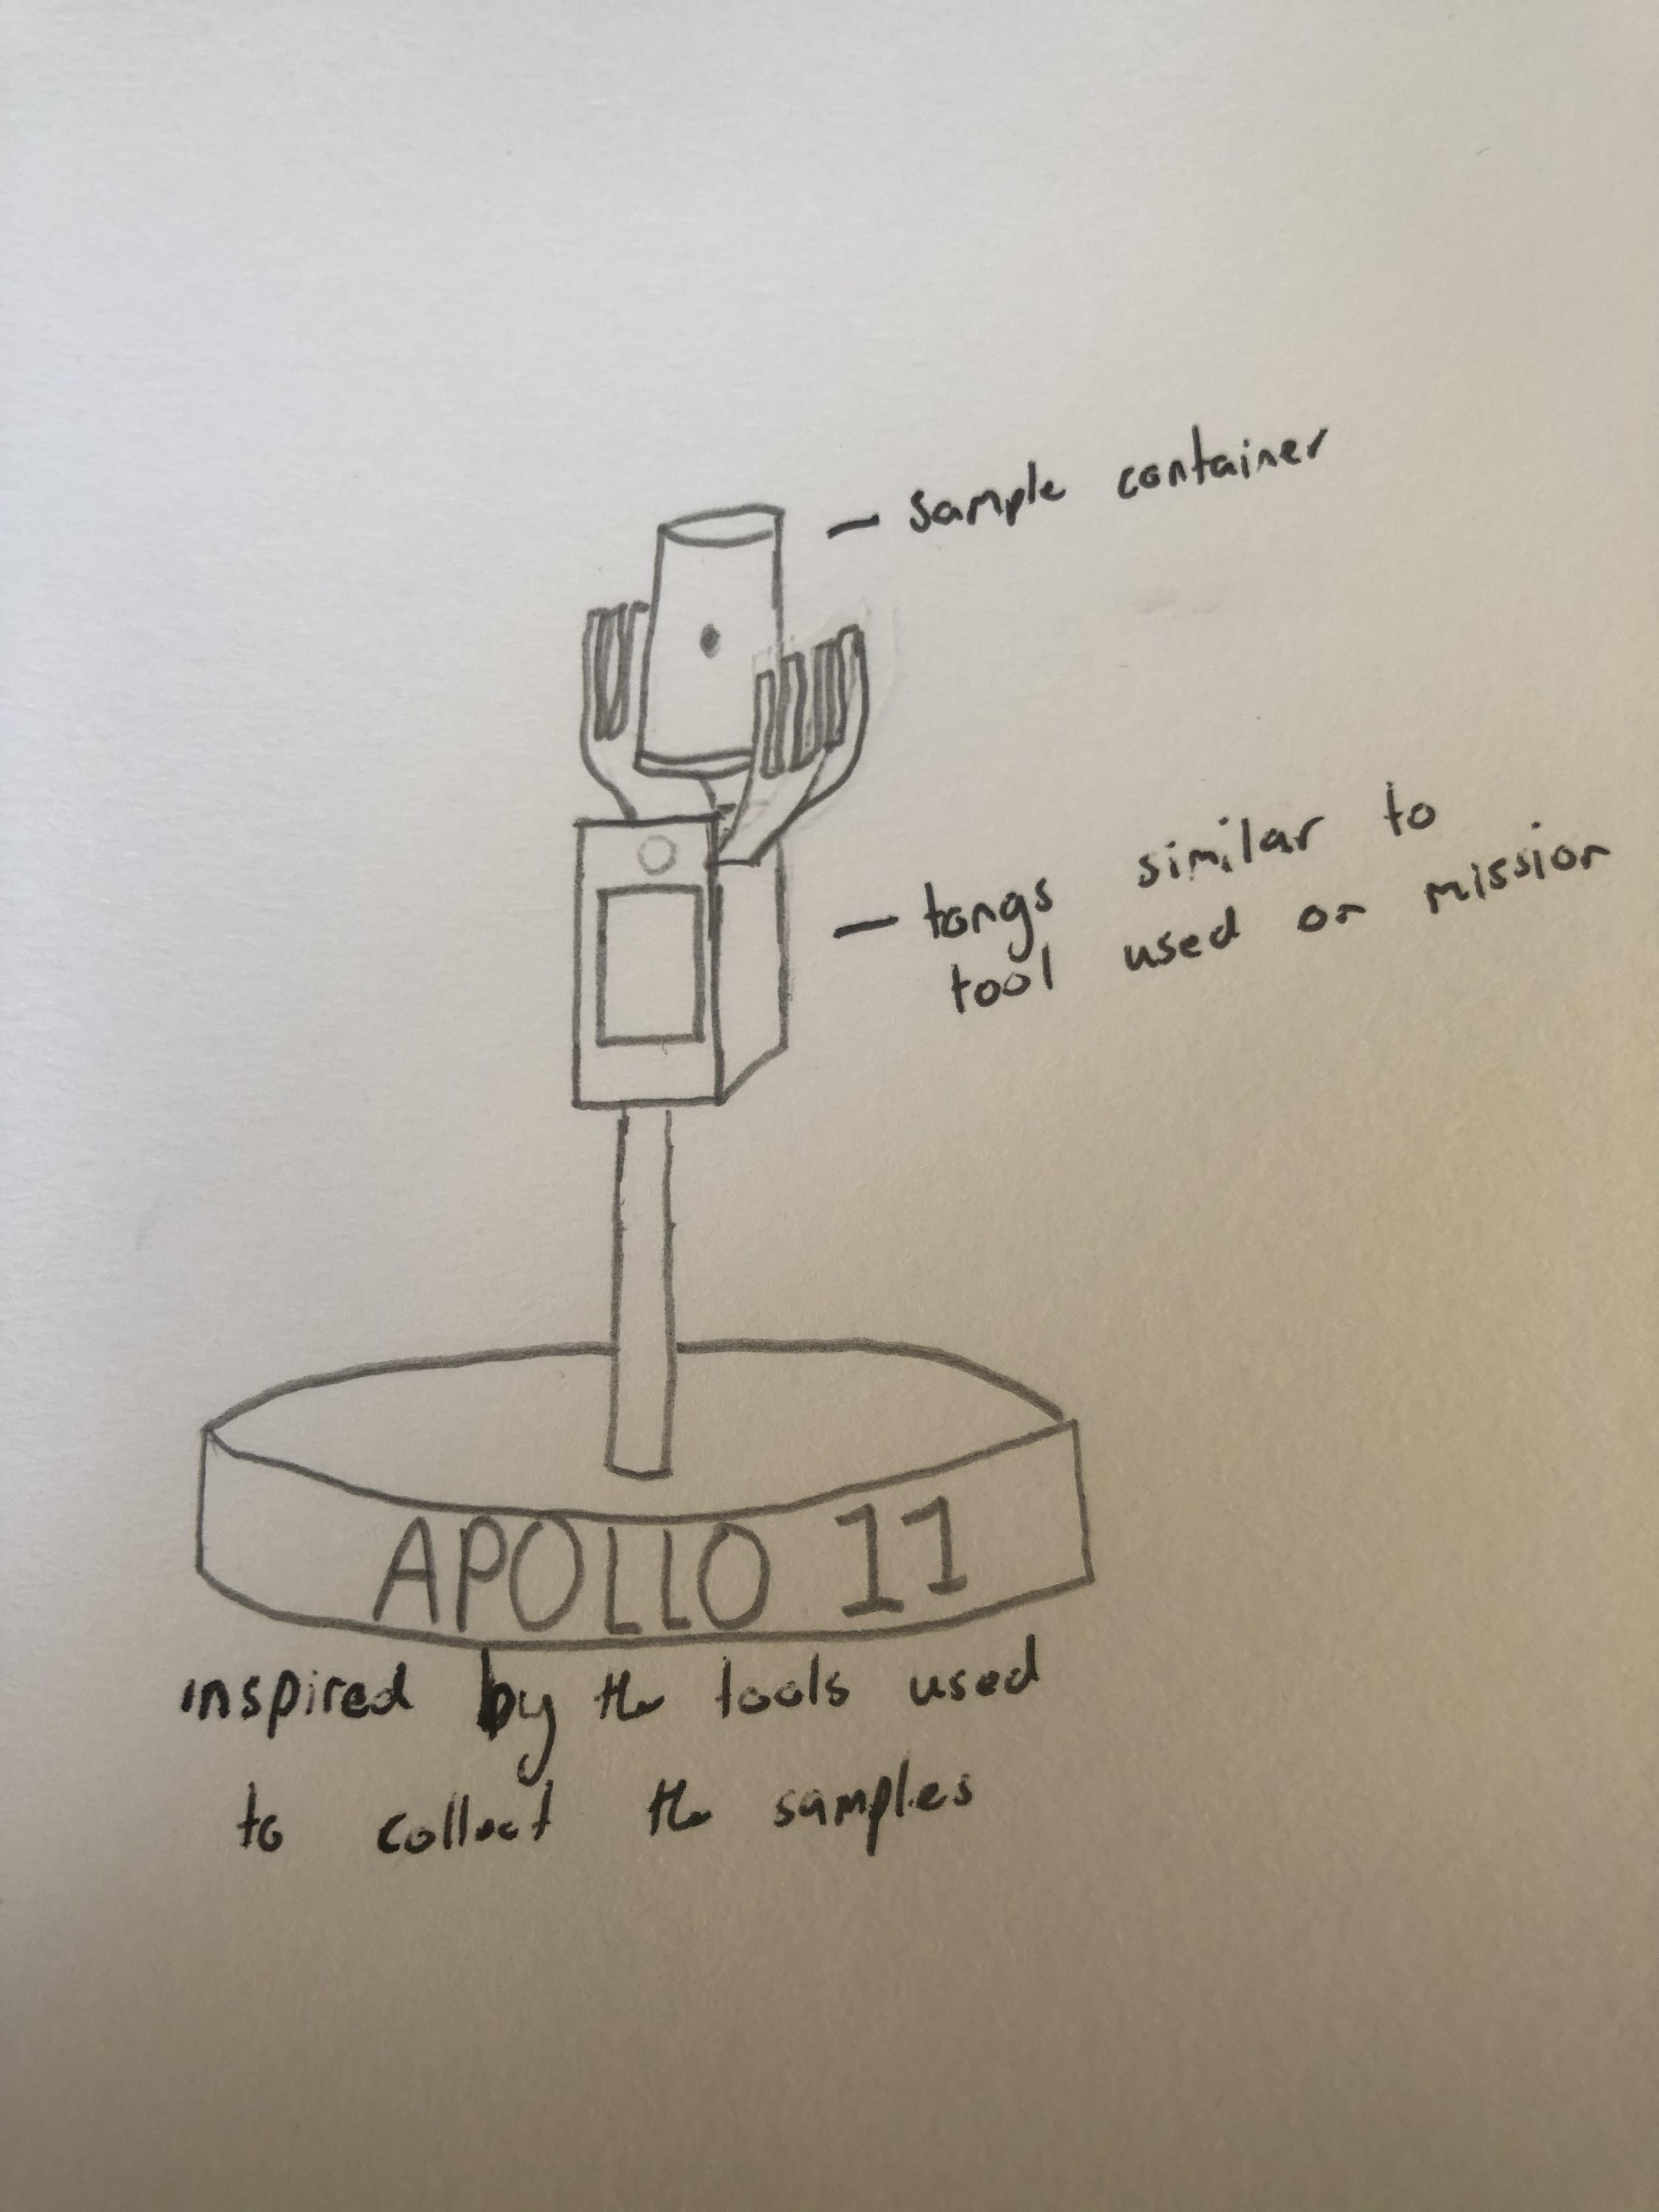 – sample container
– tongs similar to
tool used on mission
APOLLO 11
inspired by the tools used
to collect the samples